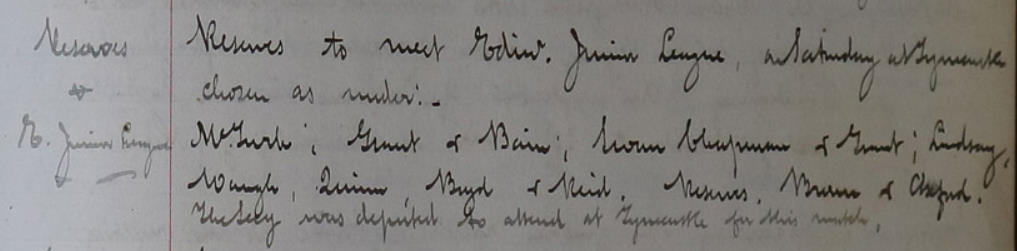 Reserves
&
E. Junior League
Reserves to meet Edinr. Junior League, on Saturday at Tynecastle
chosen as under:-
Grant & Bain; Chapman & Grant; Lindsay,
Waugh, Quinn, Boyd & Reid. Reserves. Brown & Oxford.
The Secy was deputed to attend at Tynecastle for this match.